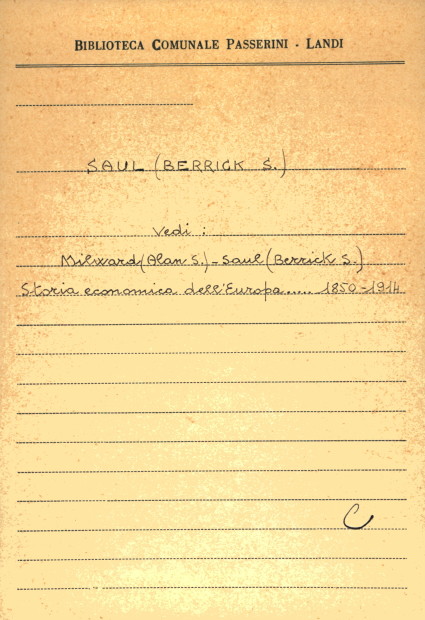 BIBLIOTECA COMUNALE PASSERINI - LANDI
SAUL (BERRICK S.)
Vedi :
Milward (Alan S.) - Saul (Berrick S.)
Storia economica dell'Europa..... 1850-1914
C